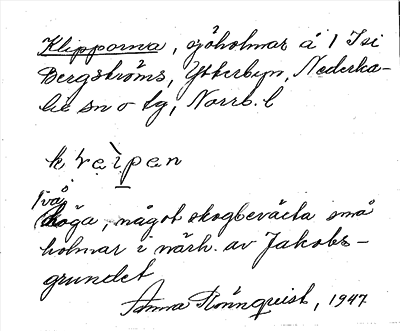 Klipporna, sjöholmar å 1 Isi
Bergströms, Ytterbyn, Nederka-
lix sn o tg, Norrb. l
Två
höga, något skogbeväxta små
holmar i närh. av Jakobs-
grundet
Anna Rönnquist, 1947